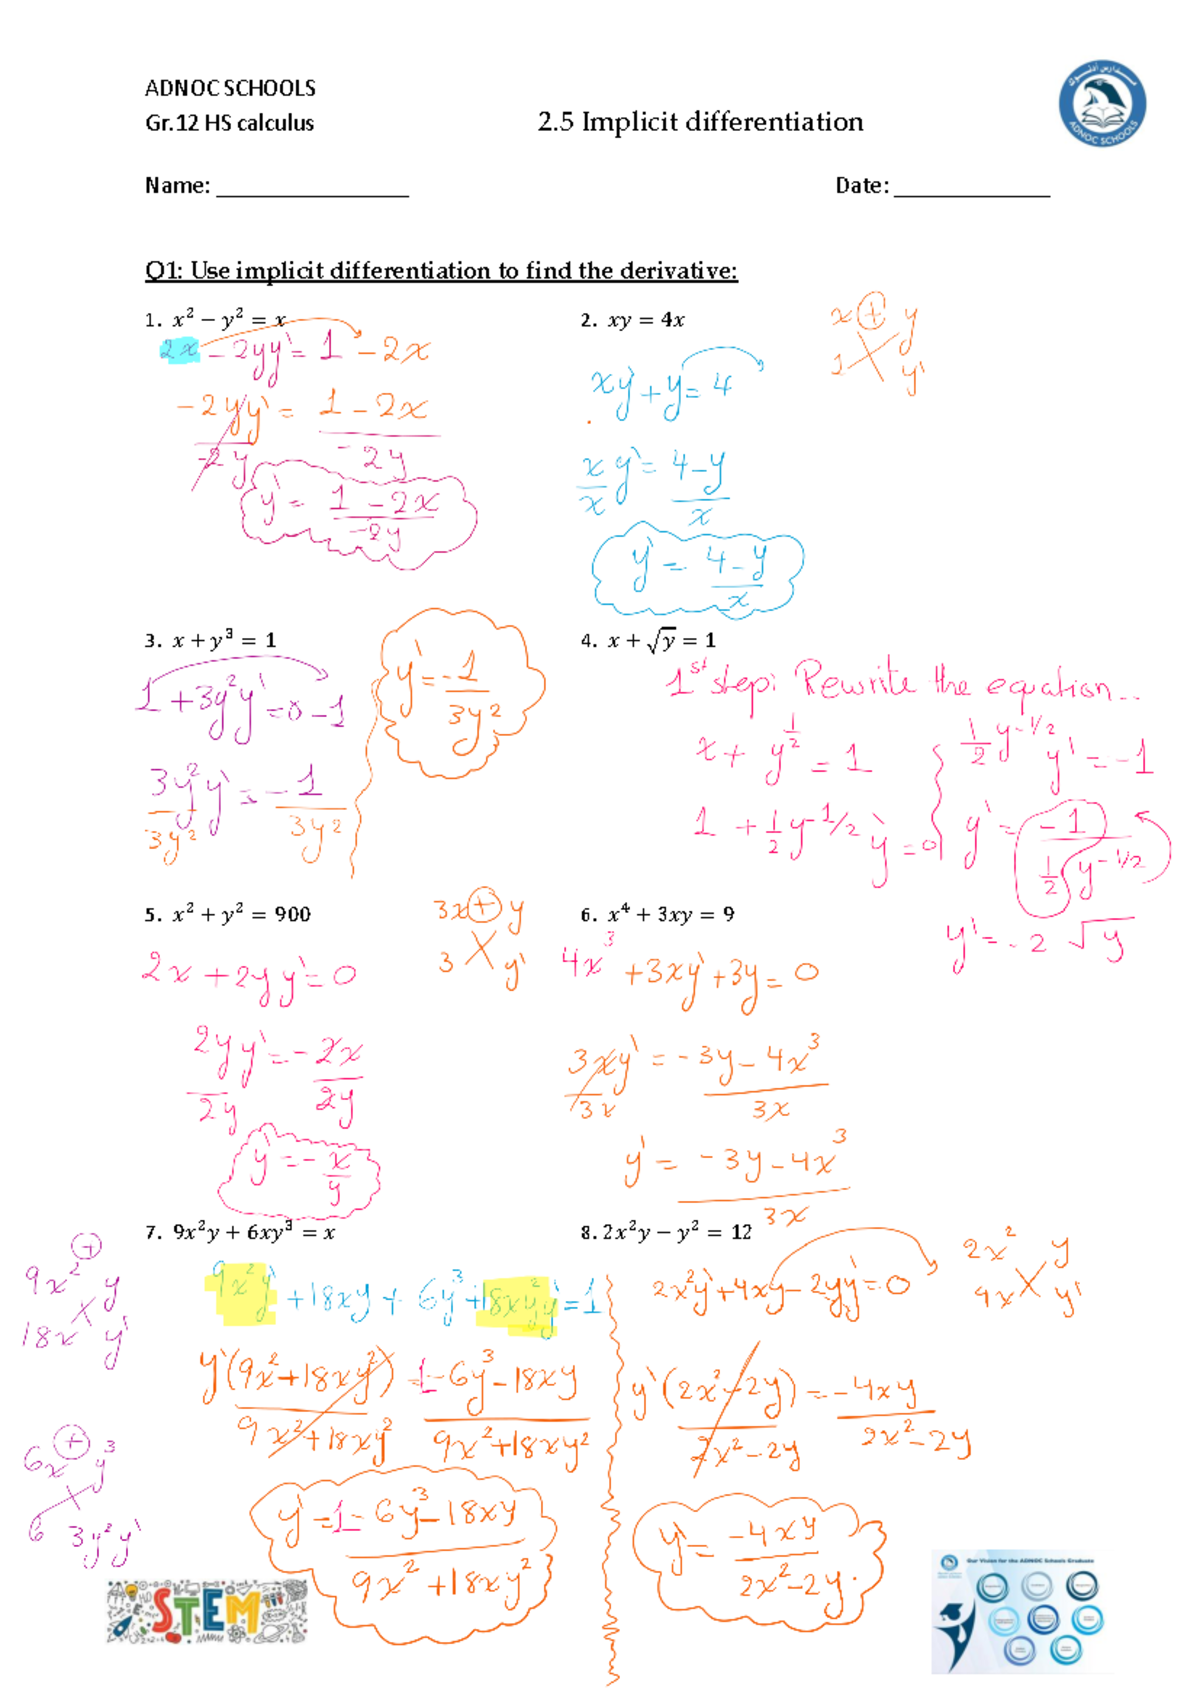 ADNOC SCHOOLS
Gr.12 HS calculus 2.5 Implicit differentiation
مدارس أدنوك
ADNOC SCHOOLS
Name: ________________ Date: _____________
Q1: Use implicit differentiation to find the derivative:
1. x² − y² = x
2x − 2yy' = 1 − 2x
−2yy' = 1 − 2x
−2y −2y
y' = (1 − 2x)/(−2y)
2. xy = 4x
x + y
1 y'
xy' + y = 4
x/x y' = (4 − y)/x
y' = (4 − y)/x
3. x + y³ = 1
1 + 3y²y' = 0 − 1
3y²y' = −1
3y² 3y²
y' = −1/(3y²)
4. x + √y = 1
1st step: Rewrite the equation...
x + y^(1/2) = 1
1 + 1/2 y^(−1/2) y' = 0
1/2 y^(−1/2) y' = −1
y' = −1/(1/2 y^(−1/2))
y' = −2√y
5. x² + y² = 900
2x + 2yy' = 0
2yy' = −2x
2y 2y
y' = −x/y
6. x⁴ + 3xy = 9
3x + y
3 y'
4x³ + 3xy' + 3y = 0
3xy' = −3y − 4x³
3x 3x
y' = (−3y − 4x³)/(3x)
7. 9x²y + 6xy³ = x
9x² + y
18x y'
9x²y' + 18xy + 6y³ + 18xy²y' = 1
y'(9x² + 18xy²) = 1 − 6y³ − 18xy
9x² + 18xy² 9x² + 18xy²
6x + y³
6 3y²y'
y' = (1 − 6y³ − 18xy)/(9x² + 18xy²)
8. 2x²y − y² = 12
2x² y
4x y'
2x²y' + 4xy − 2yy' = 0
y'(2x² − 2y) = −4xy
2x² − 2y 2x² − 2y
y' = (−4xy)/(2x² − 2y)
STEM
Our Vision for the ADNOC Schools Graduate